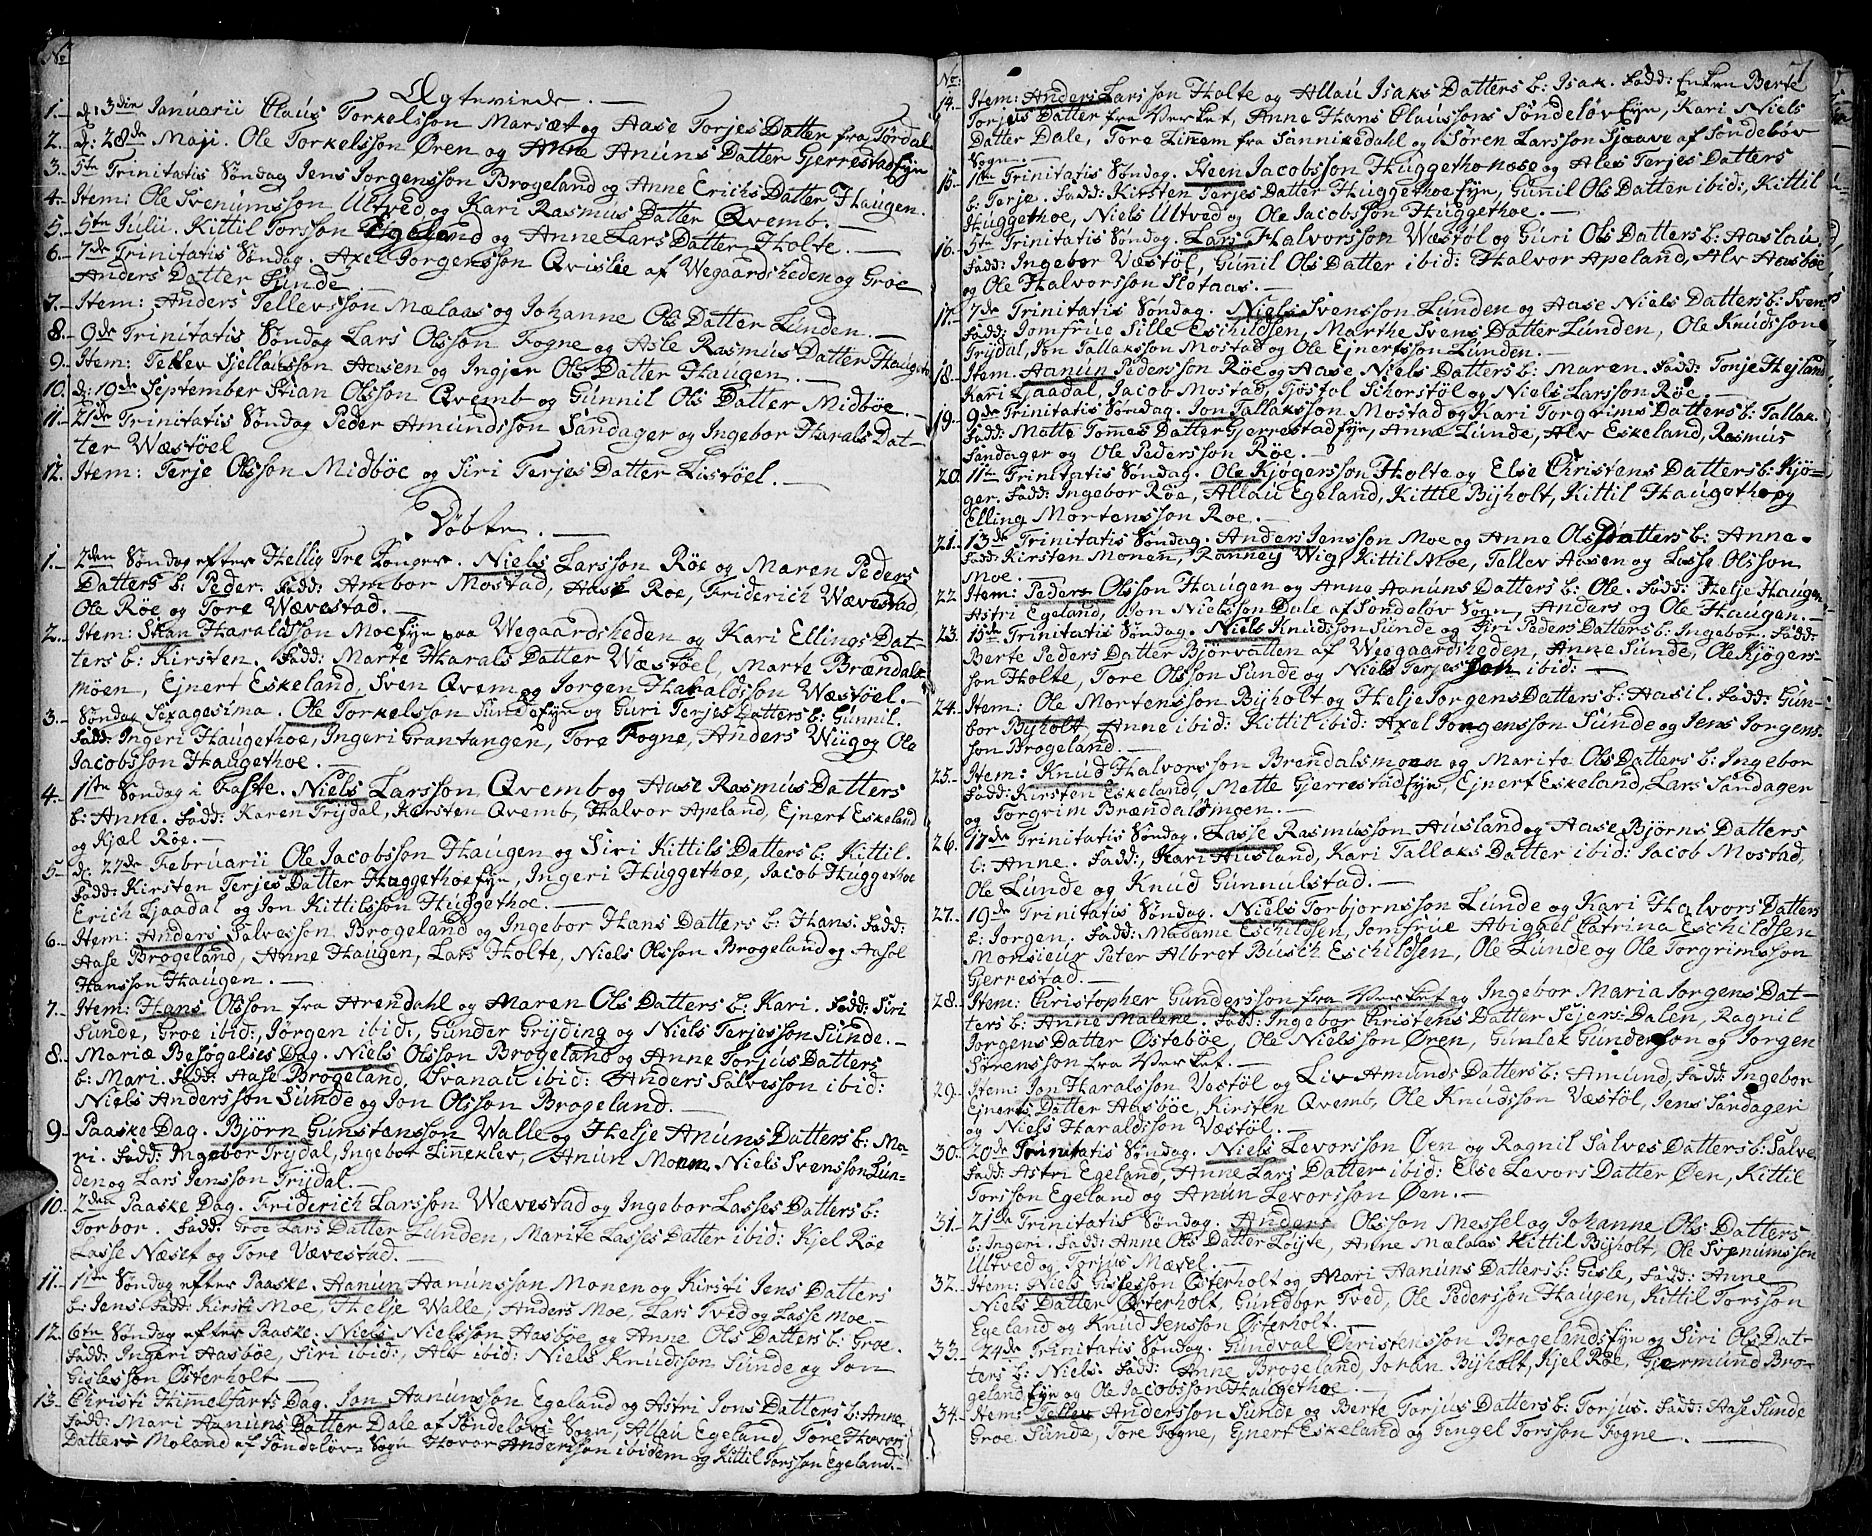 No
Ægteviede.
1. d: 3die Januarii Claus Torkelsson Marsæt og Aase Torjes Datter fra Tørdal
2. d: 28de Maji. Ole Torkelsson Øren og Anne Anuns Datter Gjerrestadfyn
3. 5te Trinitatis Søndag Jens Jorgensson Brogeland og Anne Erichs Datter Haugen.
4. Item: Ole Svenumsson Ultved og Kari Rasmus Datter Qvemb.
5. 5te Julii. Kittil Torsson Egeland og Anne Lars Datter Holte.
6. 7de Trinitatis Søndag. Axel Jorgensson Qvislie af Wegaardsheden og Groe
Anders Datter Sunde
7. Item: Anders Tellevsson Mælaas og Johanne Ols Datter Lunden.
8. 9de Trinitatis Søndag Lars Olsson Fogne og Asle Rasmus Datter Haugen
9. Item: Tellev Sjellausson Aasen og Ingjer Ols Datter Haugen.
10. d: 19de September Stian Olsson Qvemb og Gunnil Ols Datter Midbøe.
11. 21de Trinitatis Søndag Peder Amundsson Sandager og Ingebor Harals Dat-
ter Wæstøel
12. Item: Terje Olsson Midbøe og Siri Terjes Datter Listøel.
Døbte.
1. 2den Søndag efter Hellig Tre Konger. Niels Larsson Røe og Maren Peders
Datters b: Peder. Fadd: Ambor Mostad, Aase Roe, Friderich Wævestad,
Ole Røe og Tore Wævestad.
2. Item: Stian Haraldsson Moefyn paa Wegaardsheden og Kari Ellings Dat-
ters b: Kirsten. Fadd: Marte Harals Datter Wæstøel, Marte Brændals
moen, Ejnert Eskeland, Sven Qvem og Jorgen Haraldsson Wæstøel
3. Søndag Sexagesima. Ole Torkelsson Sundefyn og Guri Terjes Datters b: Gunnil.
Fadd: Ingeri Haugethoe, Ingeri Grantangen, Tore Fogne, Anders Wiig og Ole
Jacobsson Haugethoe.
4. 1ste Søndag i Faste. Niels Larsson Qvemb og Aase Rasmus Datters
b: Anne. Fadd: Karen Trydal, Kersten Qvemb, Halvor Apeland, Ejnert Eskeland
og Kjæl Røe.
5. d: 27de Februarii Ole Jacobsson Haugen og Siri Kittils Datters b: Kittil.
Fadd: Kirsten Terjes Datter Huggethoefyn, Ingeri Huggethoe, Jacob Huggethoe
Erich Ljaadal og Jon Kittilsson Huggethoe.
6. Item: Anders Salvesson Brogeland og Ingebor Hans Datters b: Hans. Fadd:
Aase Brogeland, Anne Haugen, Lars Holte, Niels Olsson Brogeland og Aasol
Hansson Haugen.
7. Item: Hans Olsson fra Arendahl og Maren Ols Datters b: Kari. Fadd: Siri
Sunde, Groe ibid:, Jorgen ibid:, Gunder Gryding og Niels Terjesson Sunde.
8. Mariæ Besøgelses Dag. Niels Olsson Brogeland og Anne Torjus Datters
b: Mari. Fadd: Aase Brogeland, Svanau ibid: Anders Salvesson ibid:
Niels Andersson Sunde og Jon Olsson Brogeland.
9. Paaske Dag. Bjørn Gunstensson Walle og Helje Anuns Datters b: Ma-
ri. Fadd: Ingebor Trydal, Ingebor Linneklev, Anun Monen, Niels Svensson Lun-
den og Lars Jensson Trydal.
10. 2den Paaske Dag. Friderich Larsson Wævestad og Ingebor Lasses Datters b:
Torbor. Fadd: Groe Lars Datter Lunden, Marite Lasses Datter ibid: Kjel Røe
Lasse Næset og Tore Vævestad.
11. 1ste Søndag efter Paaske. Aanun Aanunsson Monen og Kirsti Jens Datters
b: Jens Fadd: Kirsti Moe, Helje Walle, Anders Moe, Lars Tved og Lasse Moe.
12. 6te Søndag efter Paaske. Niels Nielsson Aasbøe og Anne Ols Datters b: Groe.
Fadd: Ingeri Aasbøe, Siri ibid:, Alv ibid: Niels Knudsson Sunde og Jon
Gislesson Østerholt
13. Christi Himmelfarts Dag. Jon Aanunsson Egeland og Astri Jons Datters b: Anne.
Fadd: Mari Aanuns Datter Dale af Søndeløv Sogn, Allau Egeland, Tore Hovor
Datter Moland af Søndeløv Sogn Hovor Andersson ibidem og Kittil Torsson Egeland.
No.
7
14. Item: Anders Larsson Holte og Allau Isaks Datters b: Isak. Fadd: Enken Berte
Torjes Datter fra Verket, Anne Hans Claussons Søndeløv fyn, Kari Niels
Datter Dale, Tore Linem fra Sannikedahl og Søren Larsson Sjaave af Søndeløv
Sogn.
15. 1ste Trinitatis Søndag. Steen Jacobsson Huggethonose og Ales Terjes Datters
b: Terje. Fadd: Kirsten Terjes Datter Huggethoefyn, Gunnil Ols Datter ibid:, Kittil
Huggethoe, Niels Ultved og Ole Jacobsson Huggethoe.
16. 5te Trinitatis Søndag. Lars Halvorsson Wæstøl og Guri Ols Datters b: Aaslau,
Fadd: Ingebor Væstøl, Gunnil Ols Datter ibid: Halvor Apeland, Alv Aasbøe
og Ole Halvorsson Slotaas.
17. 7de Trinitatis Søndag. Niels Svensson Lunden og Aase Niels Datters b: Sven
Fadd: Jomfrue Sille Eschildsen, Marthe Svens Datter Lunden, Ole Knudsson
Trydal, Jon Tallaksson Mostad og Ole Ejnertsson Lunden.
18. Item. Aanun Pedersson Røe og Aase Niels Datters b: Maren. Fadd: Tonje Hejland
Kari Ljaadal, Jacob Mostad, Tjostol Schorstøl og Niels Larsson Røe.
19. 9de Trinitatis Søndag. Jon Tallaksson Mostad og Kari Torgrims Datters b: Tallak.
Fadd: Matte Tommes Datter Gjerrestadfyn, Anne Lunde, Alv Eskeland, Rasmus
Sandager og Ole Pedersson Røe.
20. 11te Trinitatis Søndag. Ole Kjøgersson Holte og Else Christens Datters b: Kjø-
ger. Fadd: Ingebor Røe, Allau Egeland, Kittil Byholt, Kittil Haugetho og
Elling Mortensson Roe.
21. 13de Trinitatis Søndag. Anders Jensson Moe og Anne Ols Datters b: Anne.
Fadd: Kirsten Monen, Ronney Wig, Kittil Moe, Tellev Aasen og Lasse Olsson
Moe.
22. Item: Peders Olsson Haugen og Anne Aanuns Datters b: Ole. Fadd: Helje Haugen
Astri Egeland, Jon Nielsson Dale af Søndeløv Sogn, Anders og Ole Haugen.
23. 15de Trinitatis Søndag. Niels Knudsson Sunde og Siri Peders Datters b: Ingebor. Fadd:
Berte Peders Datter Bjørvatten af Weggaardsheden, Anne Sunde, Ole Kjøgers-
son Holte, Tore Olsson Sunde og Niels Terjesson ibid:
24. Item: Ole Mortensson Byholt og Helje Jorgens Datters b: Aasil. Fadd: Gun-
bor Byholt, Anne ibid: Kittil ibid: Axel Jorgensson Sunde og Jens Jorgens-
son Brogeland.
25. Item: Knud Halvorsson Brendalsmoen og Marite Ols Datters b: Ingebor
Fadd: Kirsten Eskeland, Mette Gjerrestadfyn, Ejnert Eskeland, Lars Sandager
og Torgrim Brændalsmoen.
26. 17de Trinitatis Søndag. Lasse Rasmusson Ausland og Aase Bjørns Datters
b: Anne. Fadd: Kari Ausland, Kari Tallaks Datter ibid: Jacob Mostad,
Ole Lunde og Knud Gunnulstad.
27. 19de Trinitatis Søndag. Niels Torbjornsson Lunde og Kari Halvors Datters
b: Jorgen. Fadd: Madame Eschildsen, Jomfrue Abigael Catrina Eschildsen
Monsieur Peter Albret Busch Eschildsen, Ole Lunde og Ole Torgrimsson
Gjerrestad.
28. Item: Christopher Gundersson fra Verket og Ingebor Maria Jorgens Dat-
ters b: Anne Malene. Fadd: Ingebor Christens Datter Sjers-Dalen, Ragnil
Jorgens Datter Østebøe, Ole Nielsson Øren, Gunlek Gundersson og Jorgen
Sørensson fra Verket.
29. Item: Jon Haralsson Vestøl og Liv Amunds Datters b: Amund, Fadd: Ingebor
Ejnerts Datter Aasbøe, Kirsten Qvemb, Ole Knudsson Væstøl, Jens Sandager
og Niels Haraldsson Væstøl.
30. 20de Trinitatis Søndag. Niels Levorsson Øen og Ragnil Salves Datters b: Salve
Fadd: Astri Egeland, Anne Lars Datter ibid: Else Levors Datter Øen, Kittil
Torsson Egeland og Anun Levorsson Øen.
31. 21de Trinitatis Søndag. Anders Olsson Messel og Johanne Ols Datters
b: Ingeri. Fadd: Anne Ols Datter Løyte, Anne Mælaas Kittil Byholt, Ole Svenumsson
Ultved og Torjus Mæsel.
32. Item: Niels Gislesson Østerholt og Mari Aanuns Datters b: Gisle, Fadd: Anne
Niels Datter Østerholt, Gundbor Tved, Ole Pedersson Haugen, Kittil Torsson
Egeland og Knud Jensson Østerholt.
33. 24de Trinitatis Søndag. Gundval Christensson Brogelandsfyn og Siri Ols Dat-
ters b: Niels. Fadd: Anne Brogeland, Johan Byholt, Kjel Røe, Gjermund Bro-
geland fyn og Ole Jacobsson Haugethoe.
34. Item: Tallev Andersson Sunde og Berte Torjus Datters b: Torjus. Fadd: Aase Sunde
Groe Sunde, Tore Fogne, Ejnert Eskeland og Tengel Torsson Fogne.